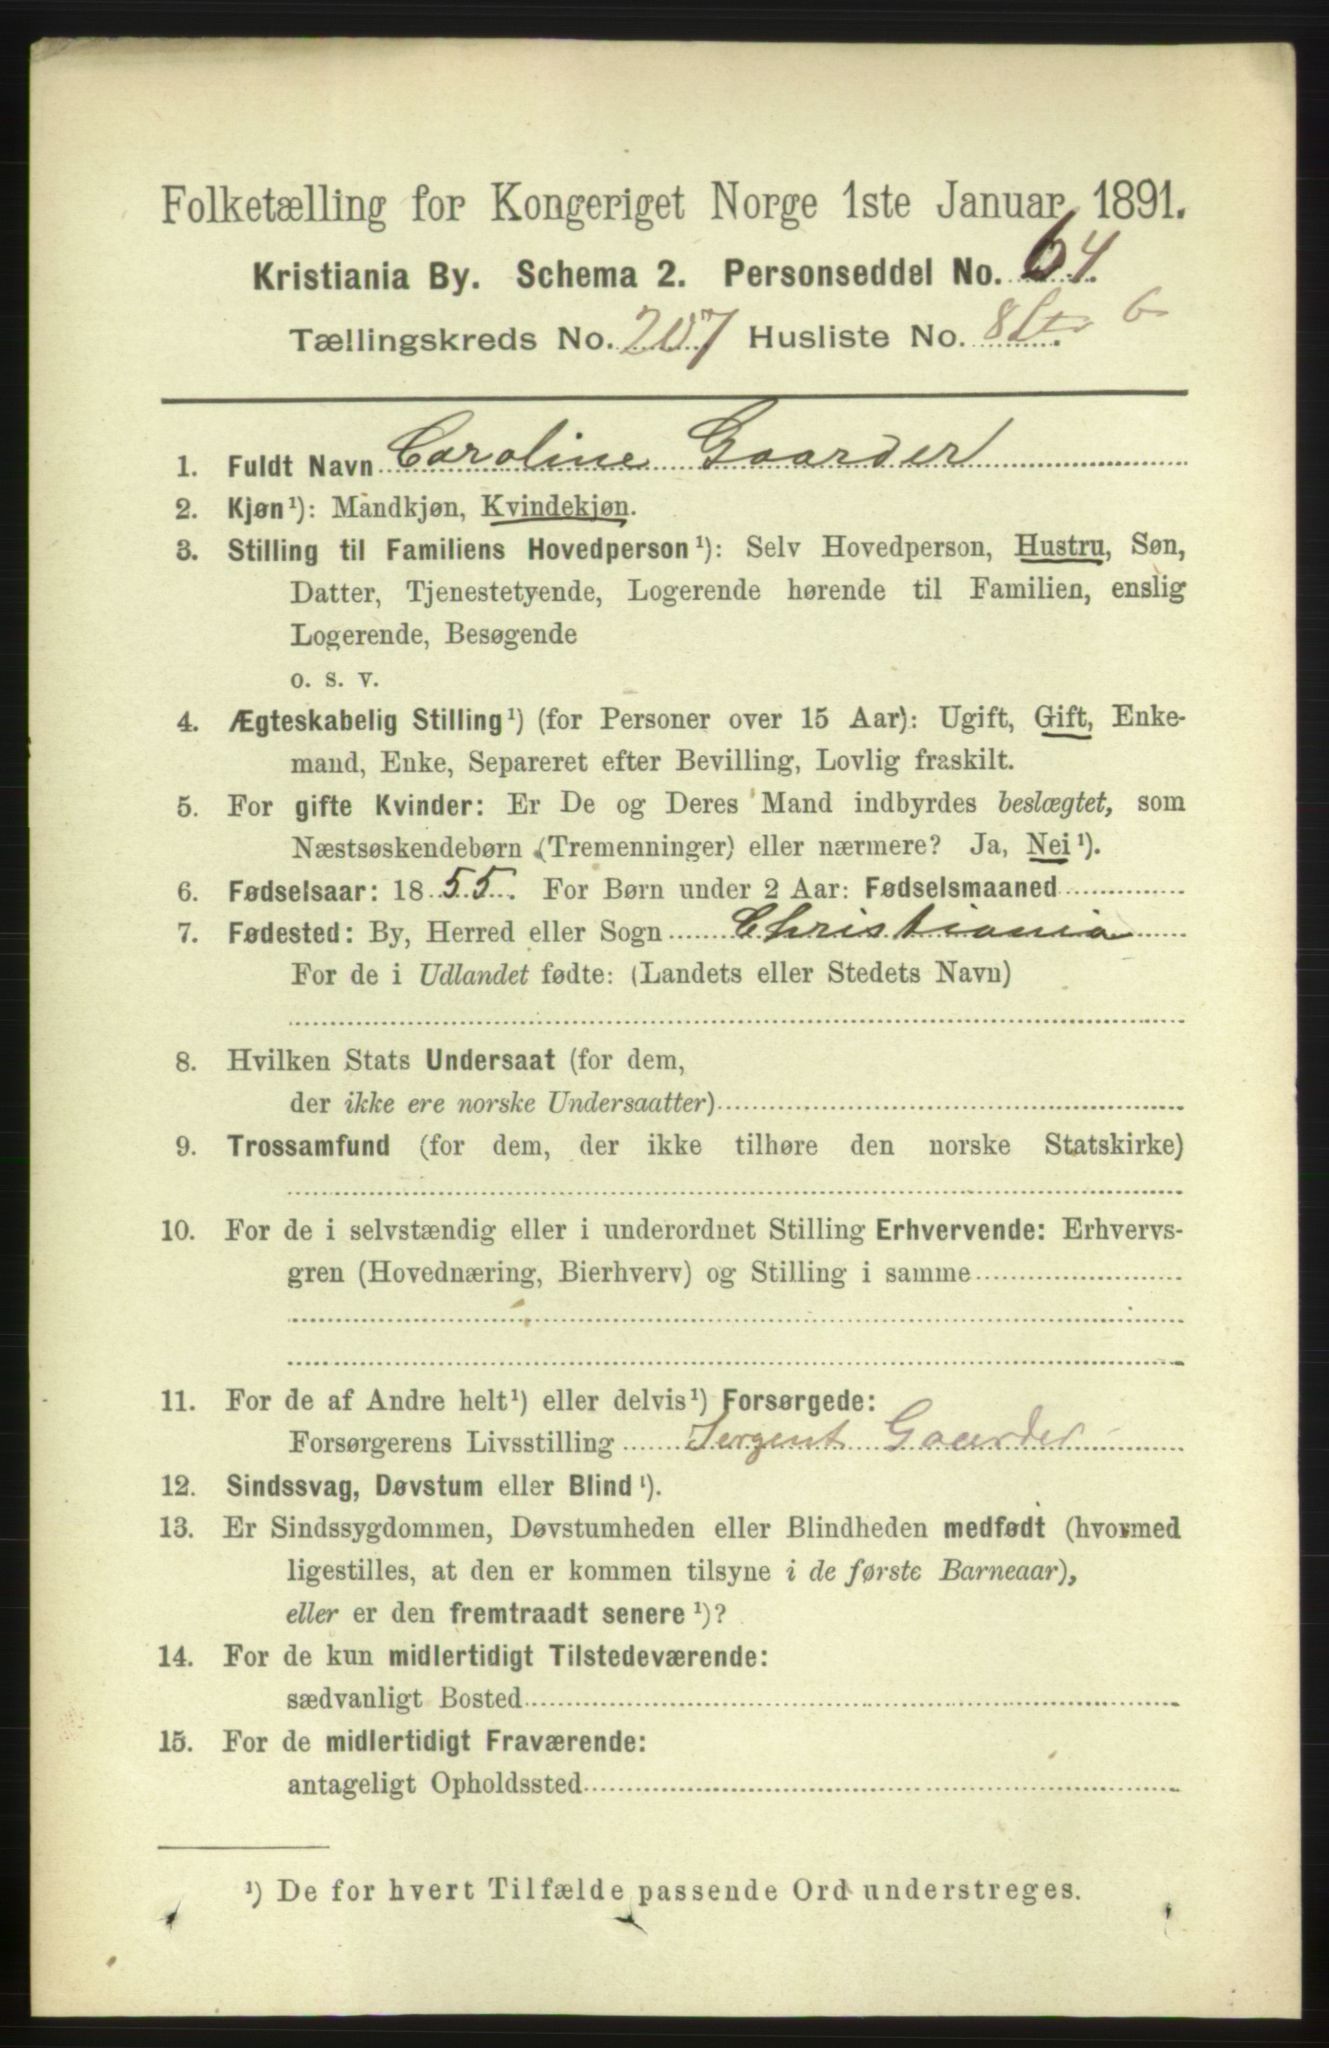 Folketælling for Kongeriget Norge 1ste Januar 1891.
Kristiania By. Schema 2. Personseddel No. 64.
Tællingskreds No. 207 Husliste No. 6
1. Fuldt Navn Caroline Gaarder
2. Kjøn¹): Mandkjøn, Kvindekjøn.
3. Stilling til Familiens Hovedperson¹): Selv Hovedperson, Hustru, Søn,
Datter, Tjenestetyende, Logerende hørende til Familien, enslig
Logerende, Besøgende
o. s. v.
4. Ægteskabelig Stilling¹) (for Personer over 15 Aar): Ugift, Gift, Enke-
mand, Enke, Separeret efter Bevilling, Lovlig fraskilt.
5. For gifte Kvinder: Er De og Deres Mand indbyrdes beslægtet, som
Næstsøskendebørn (Tremenninger) eller nærmere? Ja, Nei¹).
6. Fødselsaar: 1855. For Børn under 2 Aar: Fødselsmaaned
7. Fødested: By, Herred eller Sogn Christiania
For de i Udlandet fødte: (Landets eller Stedets Navn)
8. Hvilken Stats Undersaat (for dem,
der ikke ere norske Undersaatter)
9. Trossamfund (for dem, der ikke tilhøre den norske Statskirke)
10. For de i selvstændig eller i underordnet Stilling Erhvervende: Erhvervs-
gren (Hovednæring, Bierhverv) og Stilling i samme
11. For de af Andre helt¹) eller delvis¹) Forsørgede:
Forsørgerens Livsstilling Sergent Gaarder
12. Sindssvag, Døvstum eller Blind¹).
13. Er Sindssygdommen, Døvstumheden eller Blindheden medfødt (hvormed
ligestilles, at den er kommen tilsyne i de første Barneaar),
eller er den fremtraadt senere¹)?
14. For de kun midlertidigt Tilstedeværende:
sædvanligt Bosted
15. For de midlertidigt Fraværende:
antageligt Opholdssted
¹) De for hvert Tilfælde passende Ord understreges.